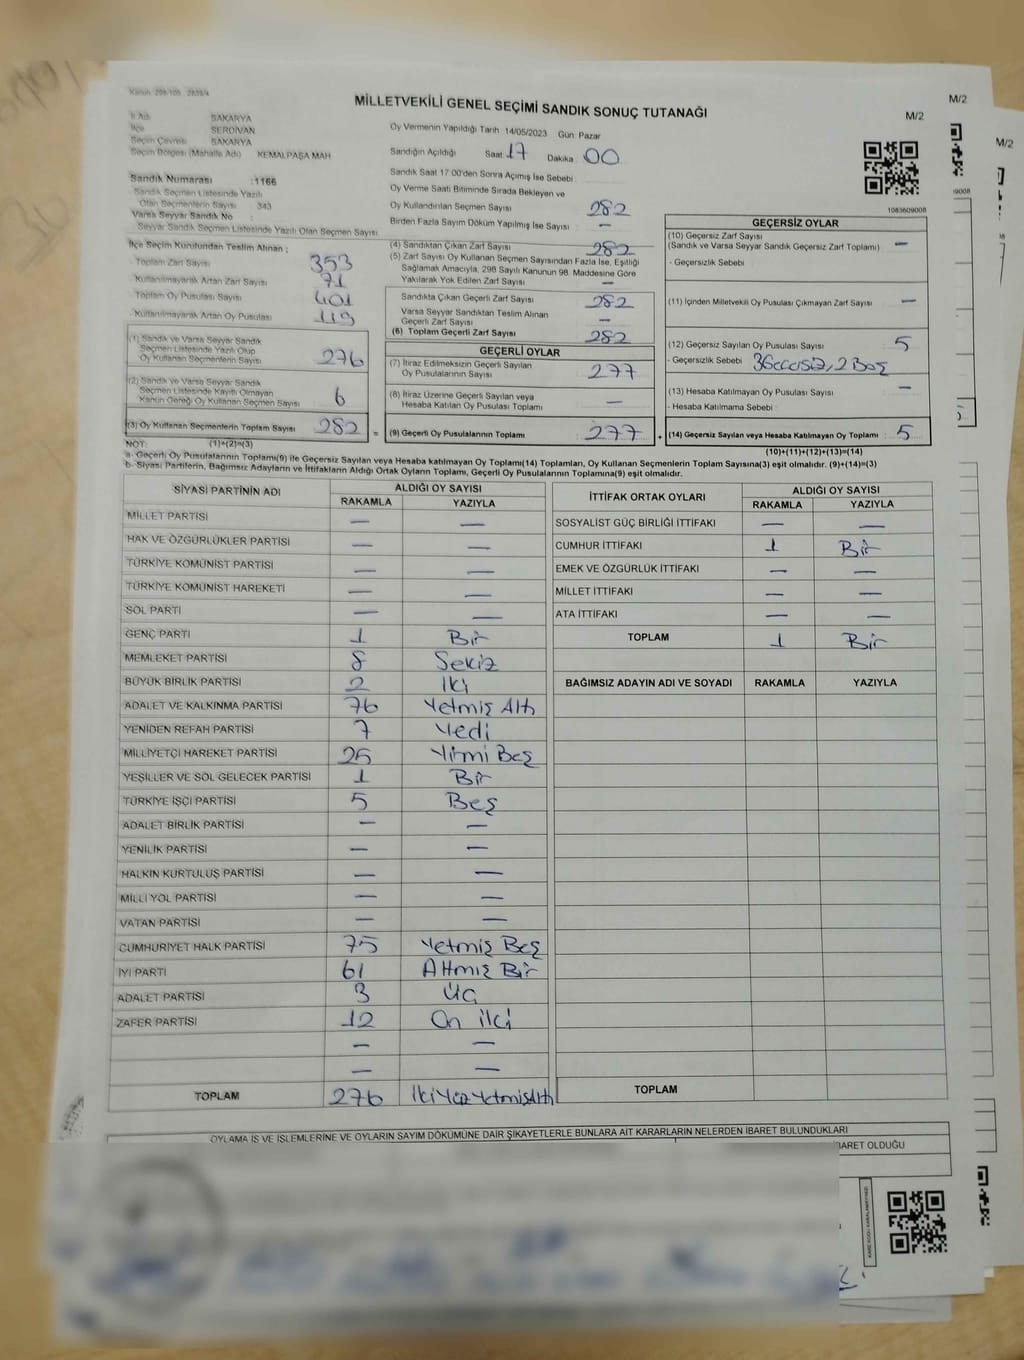 MİLLETVEKİLİ GENEL SEÇİMİ SANDIK SONUÇ TUTANAĞI
M/2
M/2
M/2
İl Adı SAKARYA
İlçe SERDİVAN
Seçim Çevresi SAKARYA
Seçim Bölgesi (Mahalle Adı) KEMALPAŞA MAH
Sandık Numarası :1166
Sandık Seçmen Listesinde Yazılı
Olan Seçmenlerin Sayısı 343
Varsa Seyyar Sandık No :
Seyyar Sandık Seçmen Listesinde Yazılı Olan Seçmen Sayısı
Oy Vermenin Yapıldığı Tarih 14/05/2023 Gün Pazar
Sandığın Açıldığı Saat 17 Dakika 00
Sandık Saat 17:00'den Sonra Açılmış İse Sebebi
Oy Verme Saati Bitiminde Sırada Bekleyen ve
Oy Kullandırılan Seçmen Sayısı 282
Birden Fazla Sayım Döküm Yapılmış İse Sayısı —
1083609008
İlçe Seçim Kurulundan Teslim Alınan ;
Toplam Zarf Sayısı 353
Kullanılmayarak Artan Zarf Sayısı 71
Toplam Oy Pusulası Sayısı 401
Kullanılmayarak Artan Oy Pusulası 119
(1) Sandık ve Varsa Seyyar Sandık
Seçmen Listesinde Yazılı Olup
Oy Kullanan Seçmenlerin Sayısı 276
(2) Sandık ve Varsa Seyyar Sandık
Seçmen Listesinde Kayıtlı Olmayan
Kanun Gereği Oy Kullanan Seçmen Sayısı 6
(3) Oy Kullanan Seçmenlerin Toplam Sayısı 282 =
(4) Sandıktan Çıkan Zarf Sayısı 282
(5) Zarf Sayısı Oy Kullanan Seçmen Sayısından Fazla İse, Eşitliği
Sağlamak Amacıyla, 298 Sayılı Kanunun 98. Maddesine Göre
Yakılarak Yok Edilen Zarf Sayısı —
Sandıkta Çıkan Geçerli Zarf Sayısı 282
Varsa Seyyar Sandıktan Teslim Alınan
Geçerli Zarf Sayısı —
(6) Toplam Geçerli Zarf Sayısı 282
GEÇERLİ OYLAR
(7) İtiraz Edilmeksizin Geçerli Sayılan
Oy Pusulalarının Sayısı 277
(8) İtiraz Üzerine Geçerli Sayılan veya
Hesaba Katılan Oy Pusulası Toplamı —
(9) Geçerli Oy Pusulalarının Toplamı 277 +
GEÇERSİZ OYLAR
(10) Geçersiz Zarf Sayısı
(Sandık ve Varsa Seyyar Sandık Geçersiz Zarf Toplamı) —
- Geçersizlik Sebebi :
(11) İçinden Milletvekili Oy Pusulası Çıkmayan Zarf Sayısı —
(12) Geçersiz Sayılan Oy Pusulası Sayısı 5
- Geçersizlik Sebebi 3 Geçersiz, 2 Boş
(13) Hesaba Katılmayan Oy Pusulası Sayısı —
- Hesaba Katılmama Sebebi :
(14) Geçersiz Sayılan veya Hesaba Katılmayan Oy Toplamı : 5
NOT: (1)+(2)=(3) (10)+(11)+(12)+(13)=(14)
a- Geçerli Oy Pusulalarının Toplamı(9) ile Geçersiz Sayılan veya Hesaba katılmayan Oy Toplamı(14) Toplamları, Oy Kullanan Seçmenlerin Toplam Sayısına(3) eşit olmalıdır. (9)+(14)=(3)
b- Siyasi Partilerin, Bağımsız Adayların ve İttifakların Aldığı Ortak Oyların Toplamı, Geçerli Oy Pusulalarının Toplamına(9) eşit olmalıdır.
SİYASİ PARTİNİN ADI ALDIĞI OY SAYISI
RAKAMLA YAZIYLA
MİLLET PARTİSİ — —
HAK VE ÖZGÜRLÜKLER PARTİSİ — —
TÜRKİYE KOMÜNİST PARTİSİ — —
TÜRKİYE KOMÜNİST HAREKETİ — —
SOL PARTİ — —
GENÇ PARTİ 1 Bir
MEMLEKET PARTİSİ 8 Sekiz
BÜYÜK BİRLİK PARTİSİ 2 İki
ADALET VE KALKINMA PARTİSİ 76 Yetmiş Altı
YENİDEN REFAH PARTİSİ 7 Yedi
MİLLİYETÇİ HAREKET PARTİSİ 25 Yirmi Beş
YEŞİLLER VE SOL GELECEK PARTİSİ 1 Bir
TÜRKİYE İŞÇİ PARTİSİ 5 Beş
ADALET BİRLİK PARTİSİ — —
YENİLİK PARTİSİ — —
HALKIN KURTULUŞ PARTİSİ — —
MİLLİ YOL PARTİSİ — —
VATAN PARTİSİ — —
CUMHURİYET HALK PARTİSİ 75 Yetmiş Beş
İYİ PARTİ 61 Altmış Bir
ADALET PARTİSİ 3 Üç
ZAFER PARTİSİ 12 On iki
— —
— —
TOPLAM 276 İki Yüz Yetmiş Altı
İTTİFAK ORTAK OYLARI ALDIĞI OY SAYISI
RAKAMLA YAZIYLA
SOSYALİST GÜÇ BİRLİĞİ İTTİFAKI — —
CUMHUR İTTİFAKI 1 Bir
EMEK VE ÖZGÜRLÜK İTTİFAKI — —
MİLLET İTTİFAKI — —
ATA İTTİFAKI — —
TOPLAM 1 Bir
BAĞIMSIZ ADAYIN ADI VE SOYADI RAKAMLA YAZIYLA
TOPLAM
OYLAMA İŞ VE İŞLEMLERİNE VE OYLARIN SAYIM DÖKÜMÜNE DAİR ŞİKAYETLERLE BUNLARA AİT KARARLARIN NELERDEN İBARET BULUNDUKLARI
BARET OLDUĞU